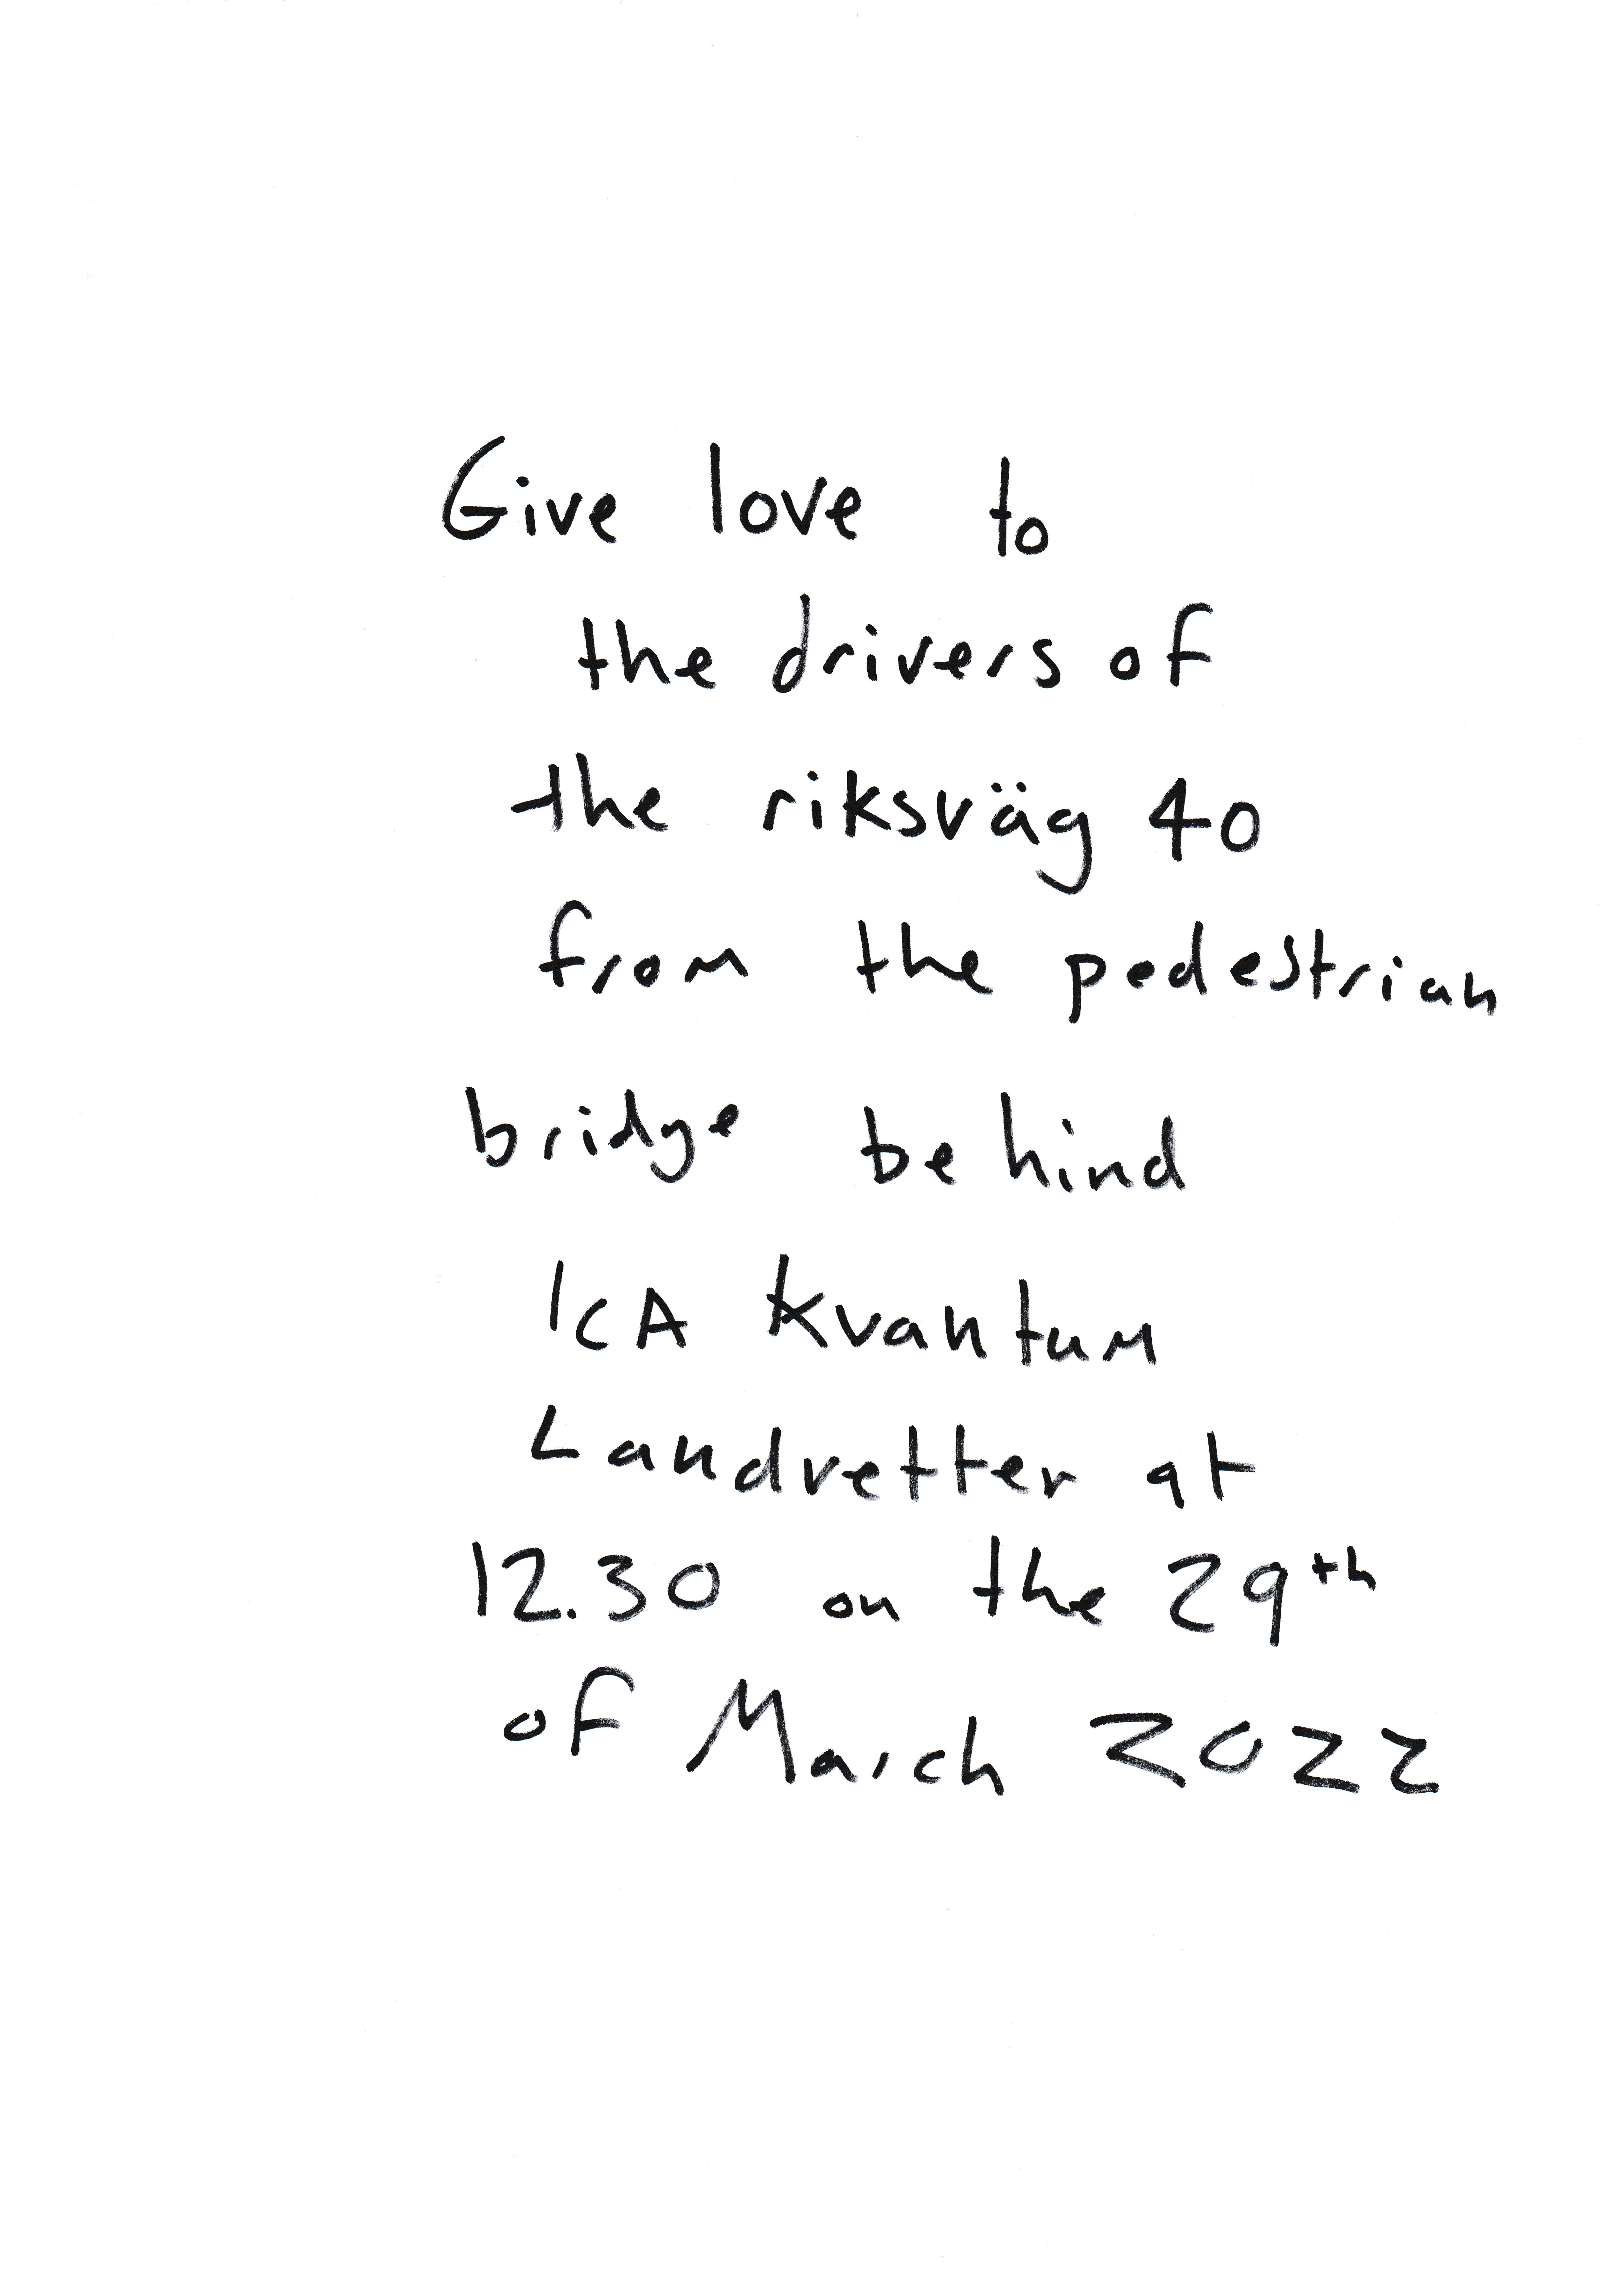 Give love to
the drivers of
the riksväg 40
from the pedestrian
bridge behind
ICA Kvantum
Landvetter at
12.30 on the 29th
of March 2022